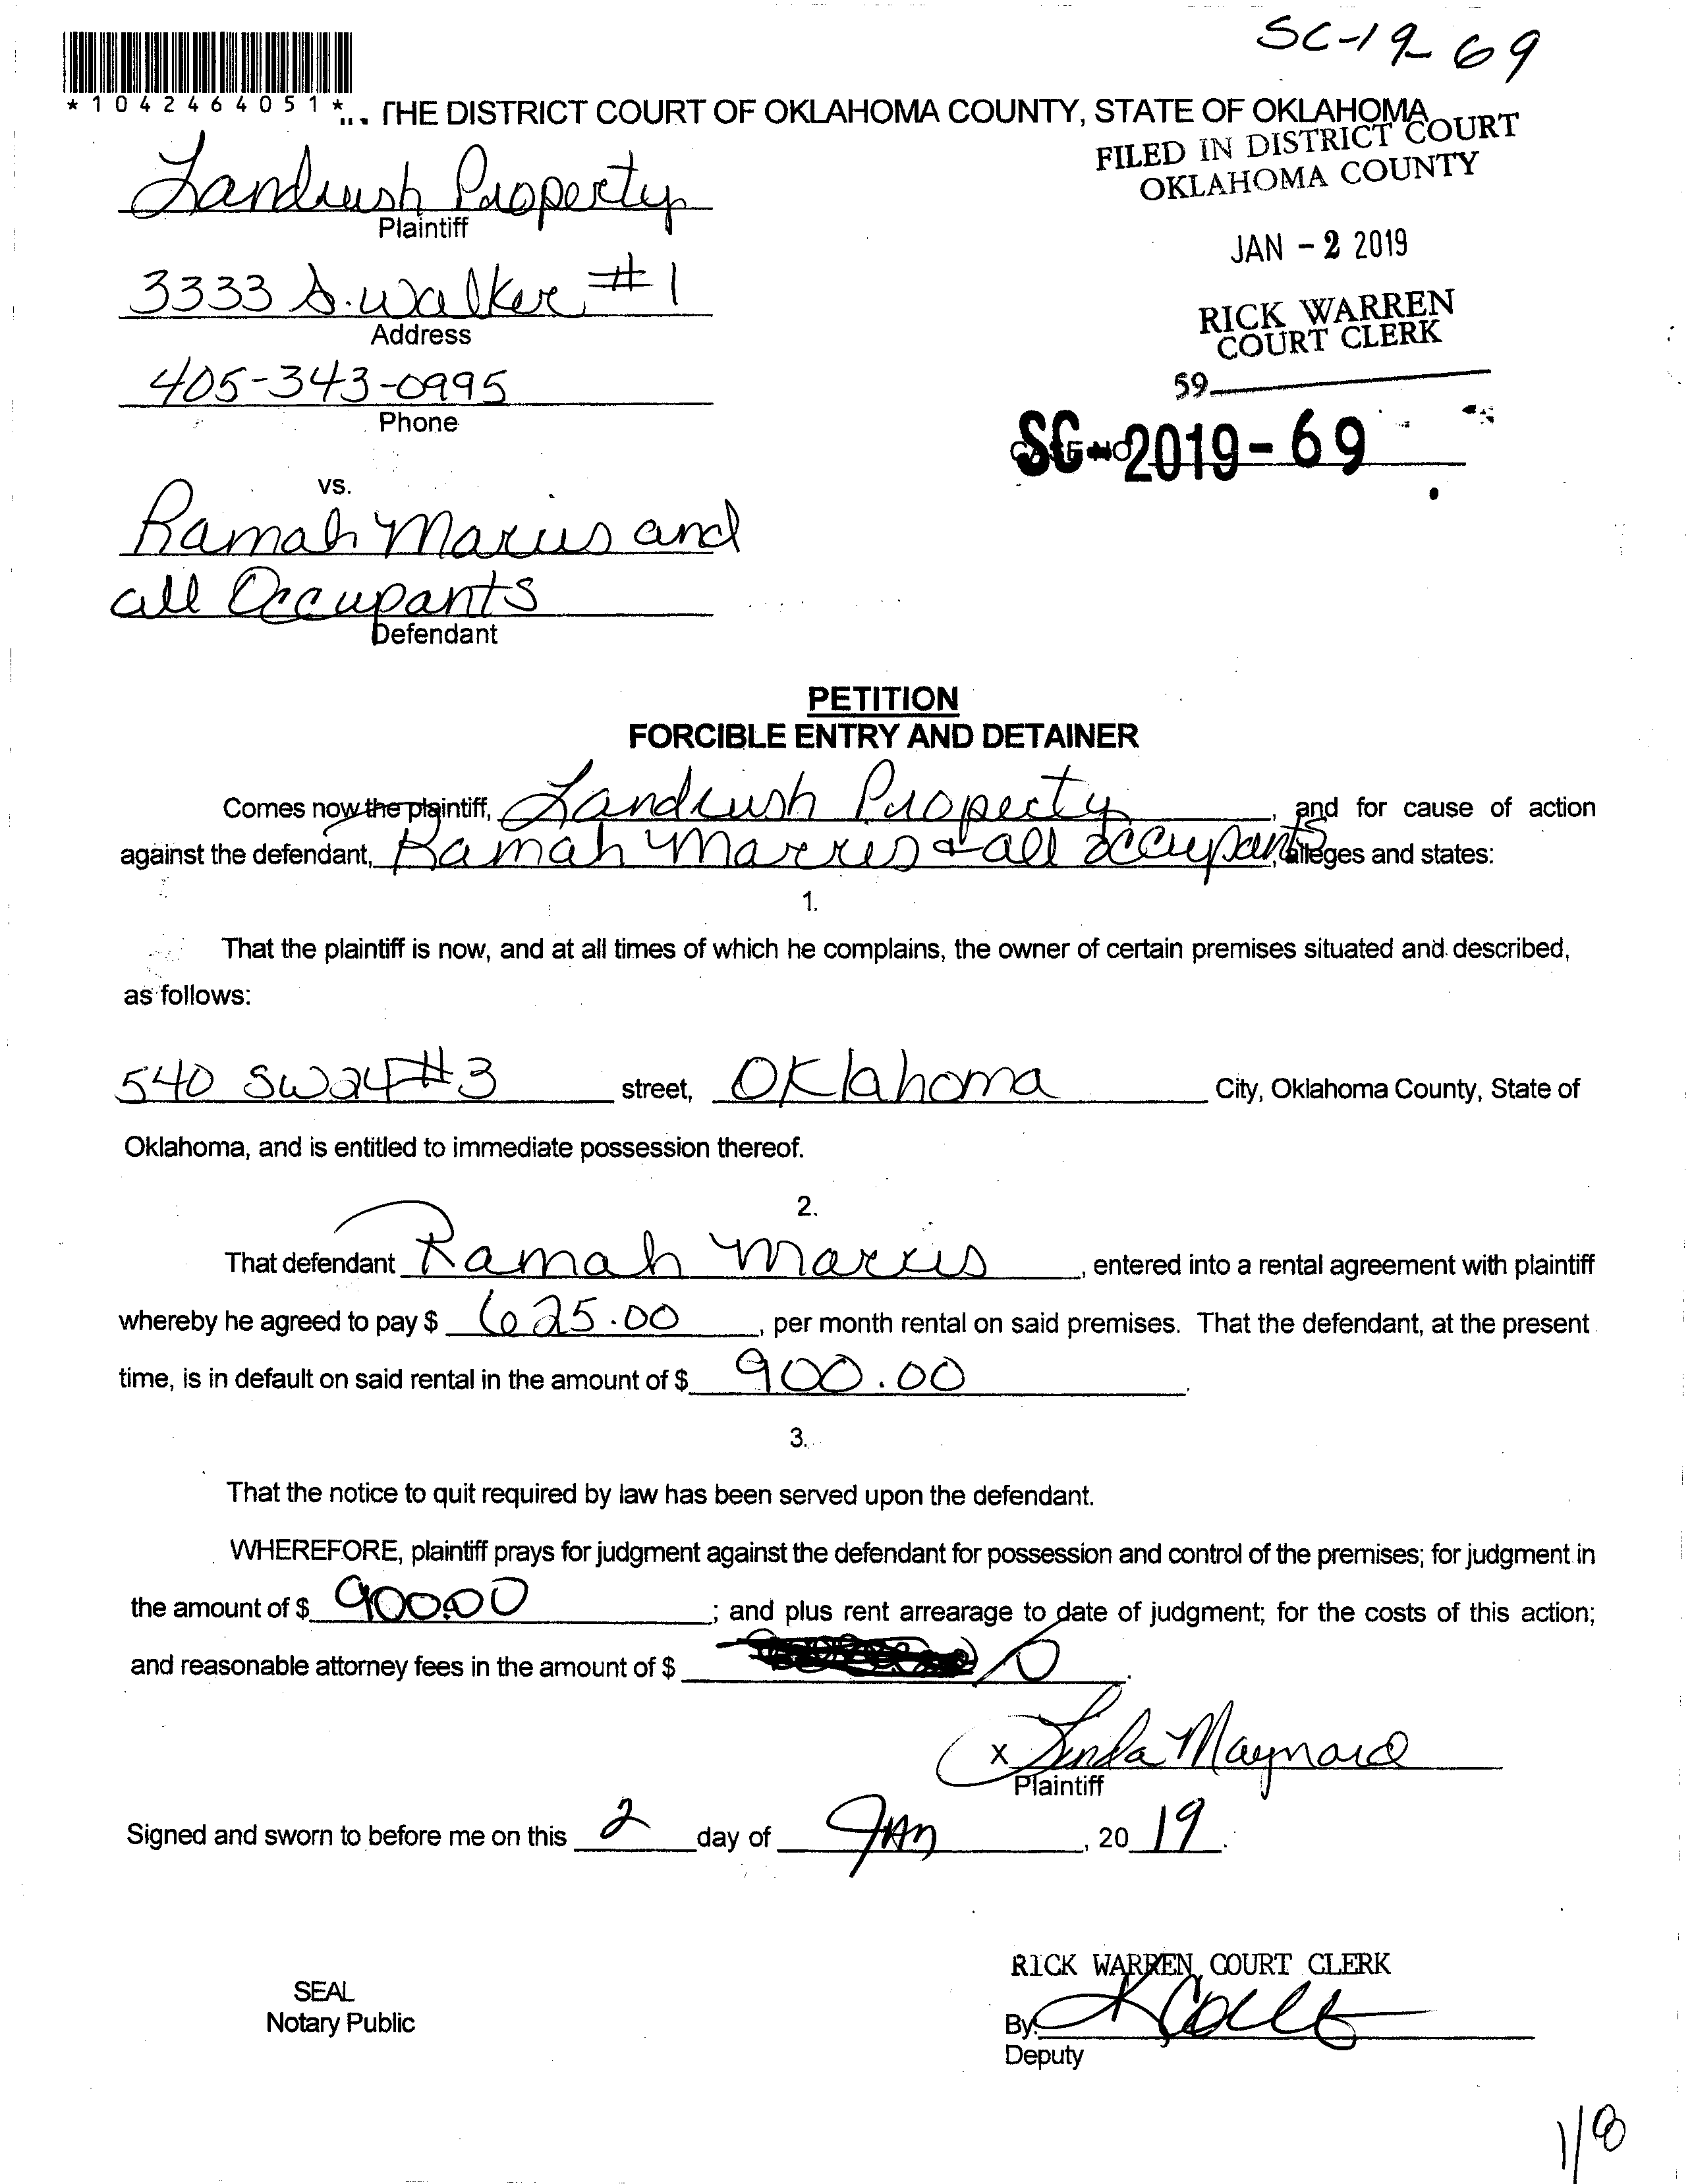 SC-19-69
*1042464051*
THE DISTRICT COURT OF OKLAHOMA COUNTY, STATE OF OKLAHOMA
FILED IN DISTRICT COURT
OKLAHOMA COUNTY
Landrush Property
Plaintiff
JAN - 2 2019
3333 S. Walker #1
Address
RICK WARREN
COURT CLERK
405-343-0995
Phone
59
SC-2019-69
vs.
Ramah Marius and
all Occupants
Defendant
PETITION
FORCIBLE ENTRY AND DETAINER
Comes now the plaintiff, Landrush Property, and for cause of action
against the defendant, Ramah & all occupants, alleges and states:
1.
That the plaintiff is now, and at all times of which he complains, the owner of certain premises situated and described,
as follows:
540 SW 24 #3 street, Oklahoma City, Oklahoma County, State of
Oklahoma, and is entitled to immediate possession thereof.
2.
That defendant Ramah, entered into a rental agreement with plaintiff
whereby he agreed to pay $ 625.00, per month rental on said premises. That the defendant, at the present
time, is in default on said rental in the amount of $ 900.00.
3.
That the notice to quit required by law has been served upon the defendant.
WHEREFORE, plaintiff prays for judgment against the defendant for possession and control of the premises; for judgment in
the amount of $ 900.00; and plus rent arrearage to date of judgment; for the costs of this action;
and reasonable attorney fees in the amount of $ 0.
x Linda Maynard
Plaintiff
Signed and sworn to before me on this 2 day of Jan, 2019.
RICK WARREN, COURT CLERK
SEAL
Notary Public
By:
Deputy
1/8